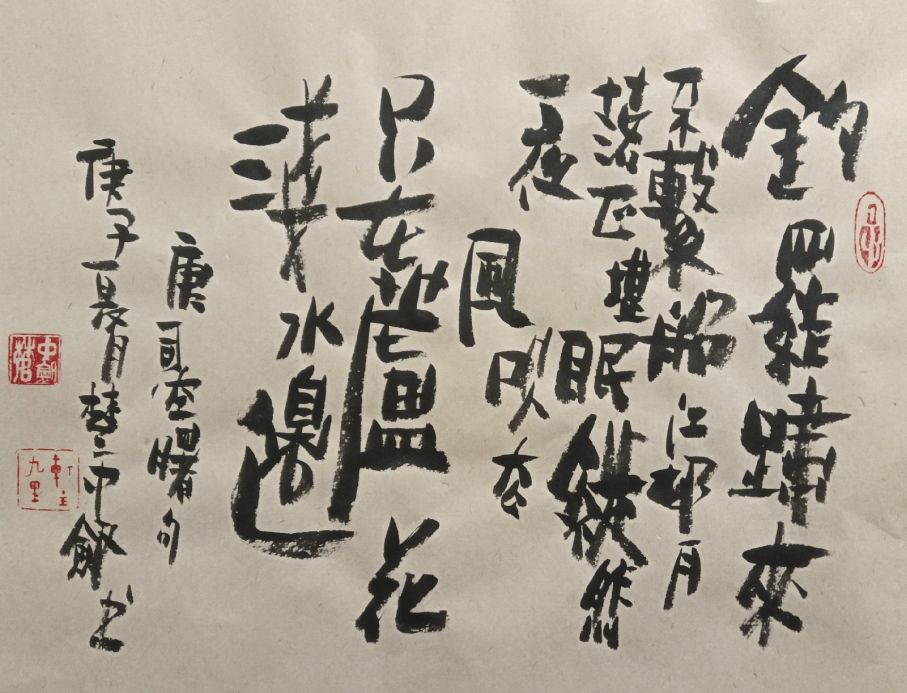 釣罷歸來
不繫船江邨月
落正堪眠縱然
一夜風吹去
只在蘆花
淺水邊
唐司空曙句
庚子夏月楚中劍书
中劍
九里